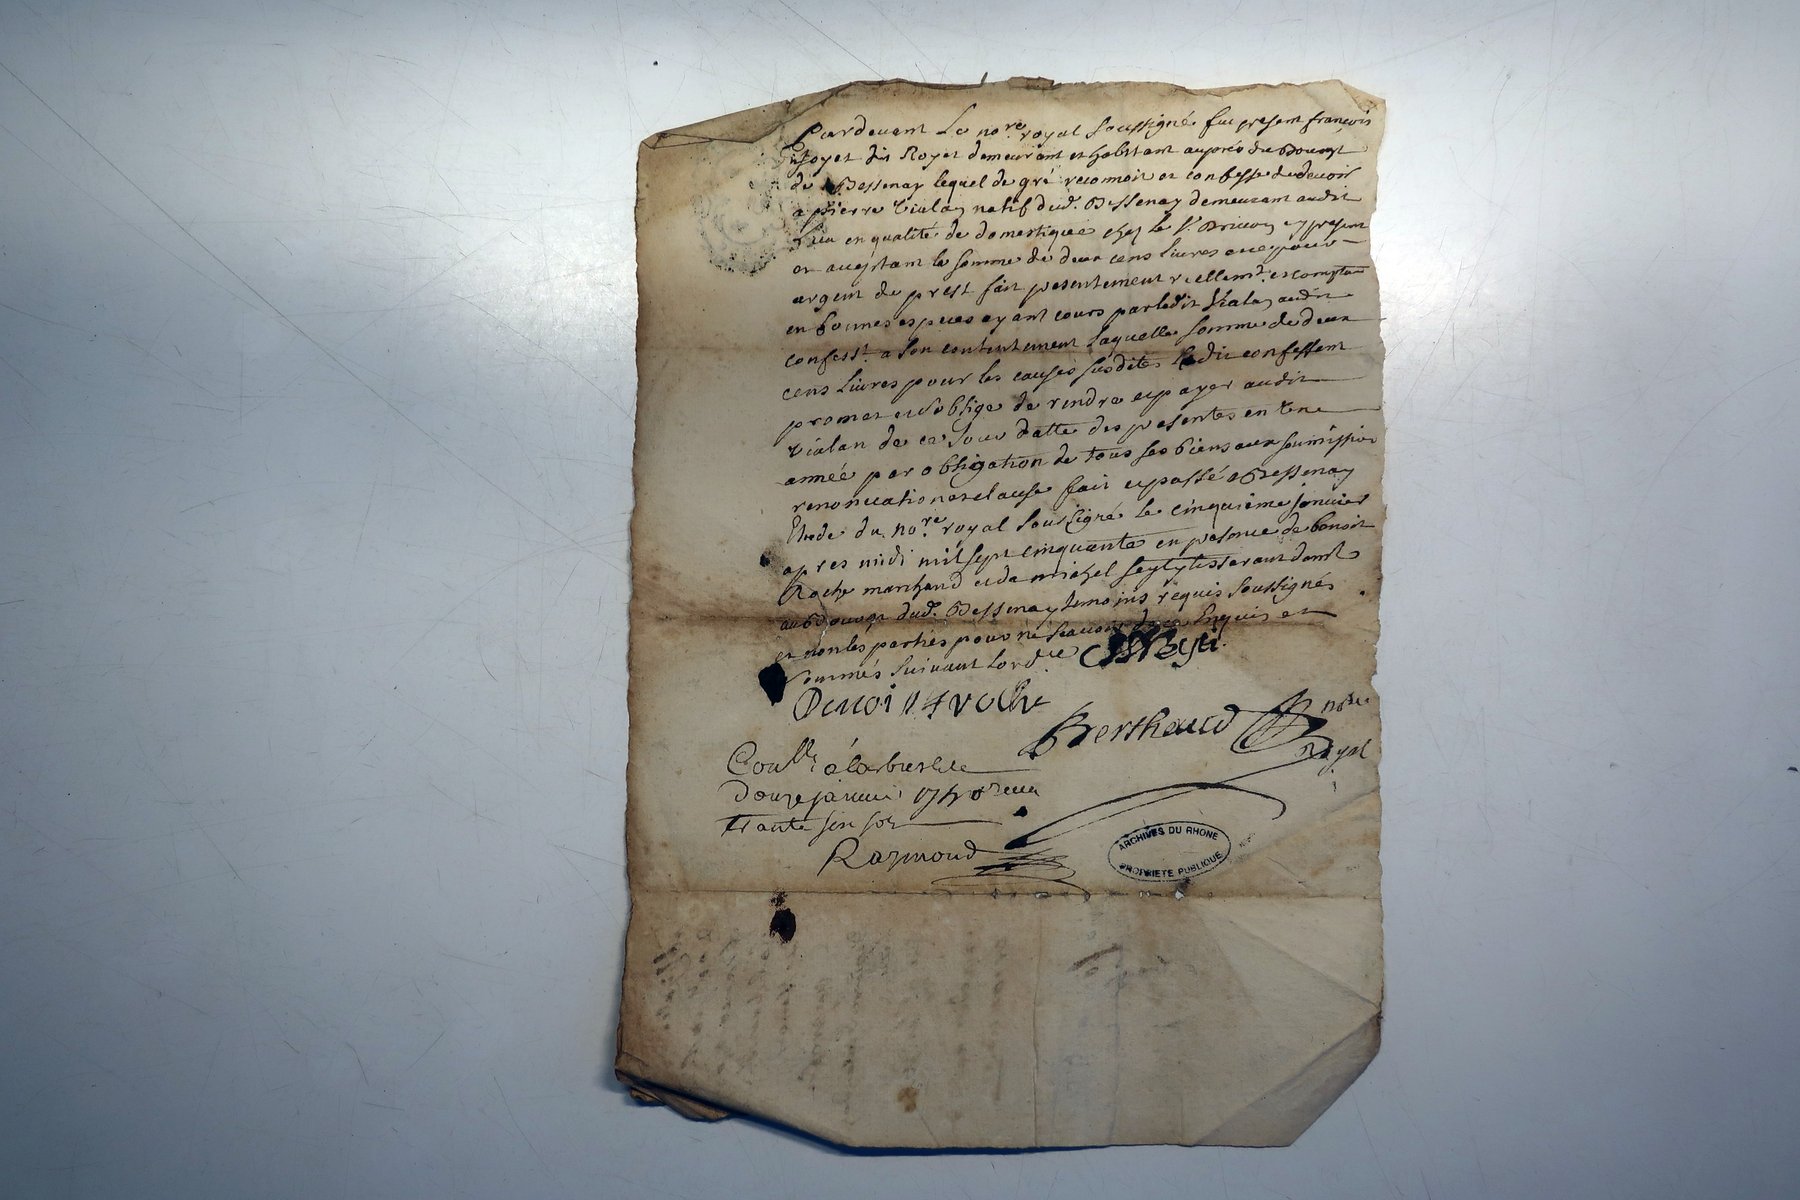 Pardevant Le no.re royal Soussigné fut present françois
dit Royet demeurant et habitant auprés du Bourgt
de Bessenay lequel de gré reconnoit et confesse de devoir
a pierre Vialan natif dud. Bessenay demeurant audit
Lieu en qualité de domestique chez le Sr. present
et acceptant la somme de deux cens Livres et ce pour
argent de prest fait presentement reellemt. et comptant
en bonnes especes ayant cours par ledit Vialan audit
confesst. a son contentement Laquelle somme de deux
cens Livres pour les causes susdites Ledit confessant
promet et s'oblige de rendre et payer audit
Vialan de ce Jour datte des presentes en une
année par obligation de tous ses biens aux soumission
renonciation et clause fait et passé a Bessenay
Etude du no.re royal Soussigné le cinquieme janvier
apres midi mil sept cinquante en presence de benoit
Roche marchand et de michel tisserant demt.
au Bourgt dud. Bessenay temoins requis soussignés
et non les parties pour ne scavoir de ce Enquis et
sommés suivant Lord.ce
Benoi Roche
Berthaud no.re
Royal
Con.llé a larbresle
Douze janvier 1750 receu
trante six sols
Raymond
ARCHIVES DU RHONE
PROPRIETE PUBLIQUE